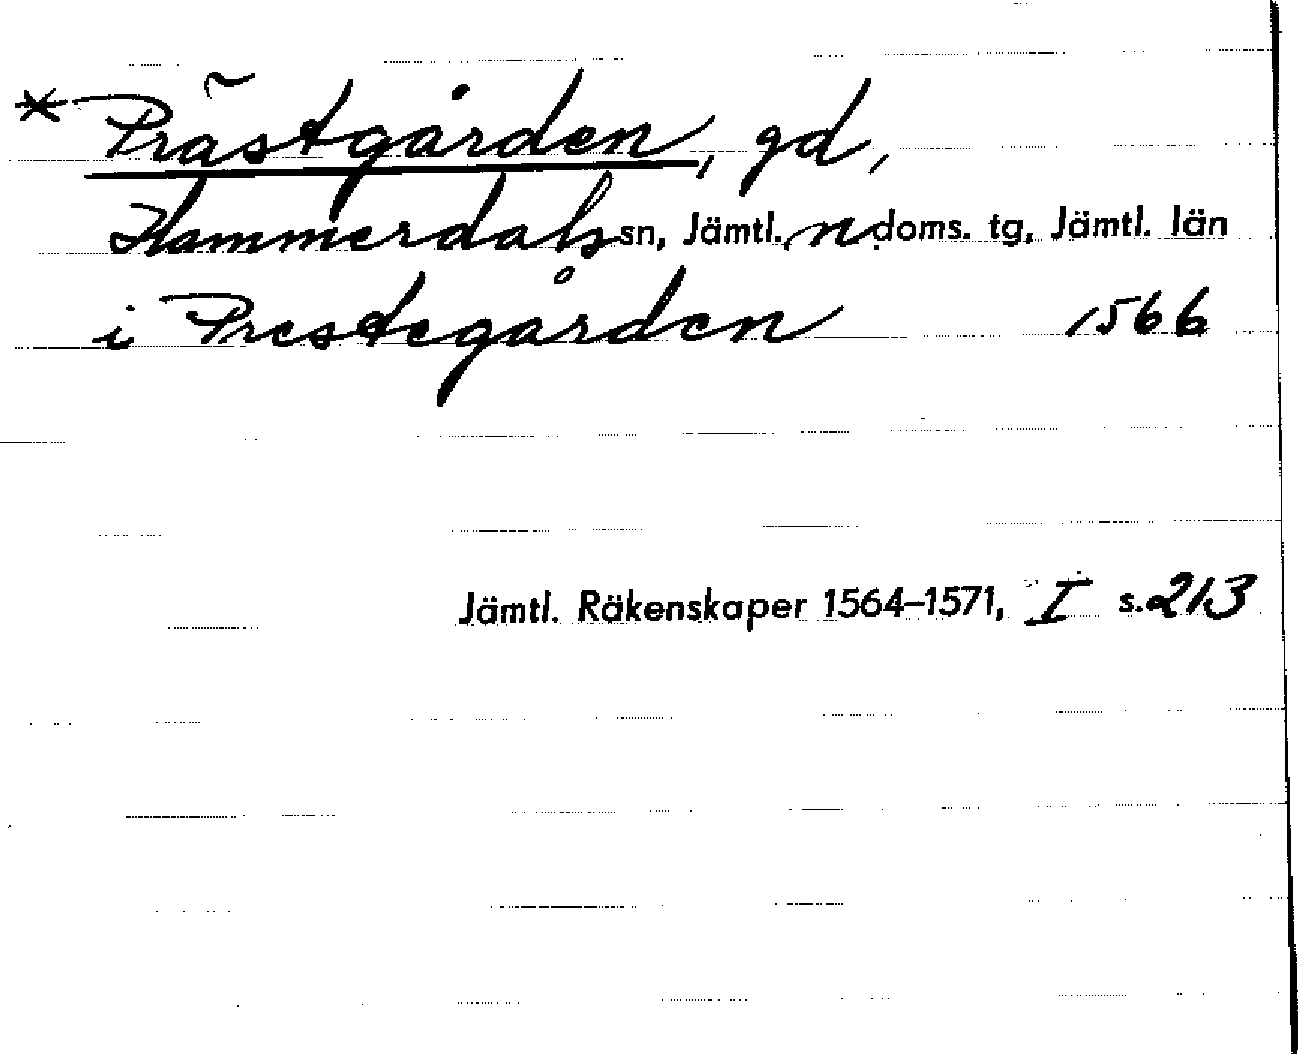 * Prästgården, gd,
Hammerdals sn, Jämtl. n doms. tg, Jämtl. län
i Prestegården 1566
Jämtl. Räkenskaper 1564–1571, I s. 213